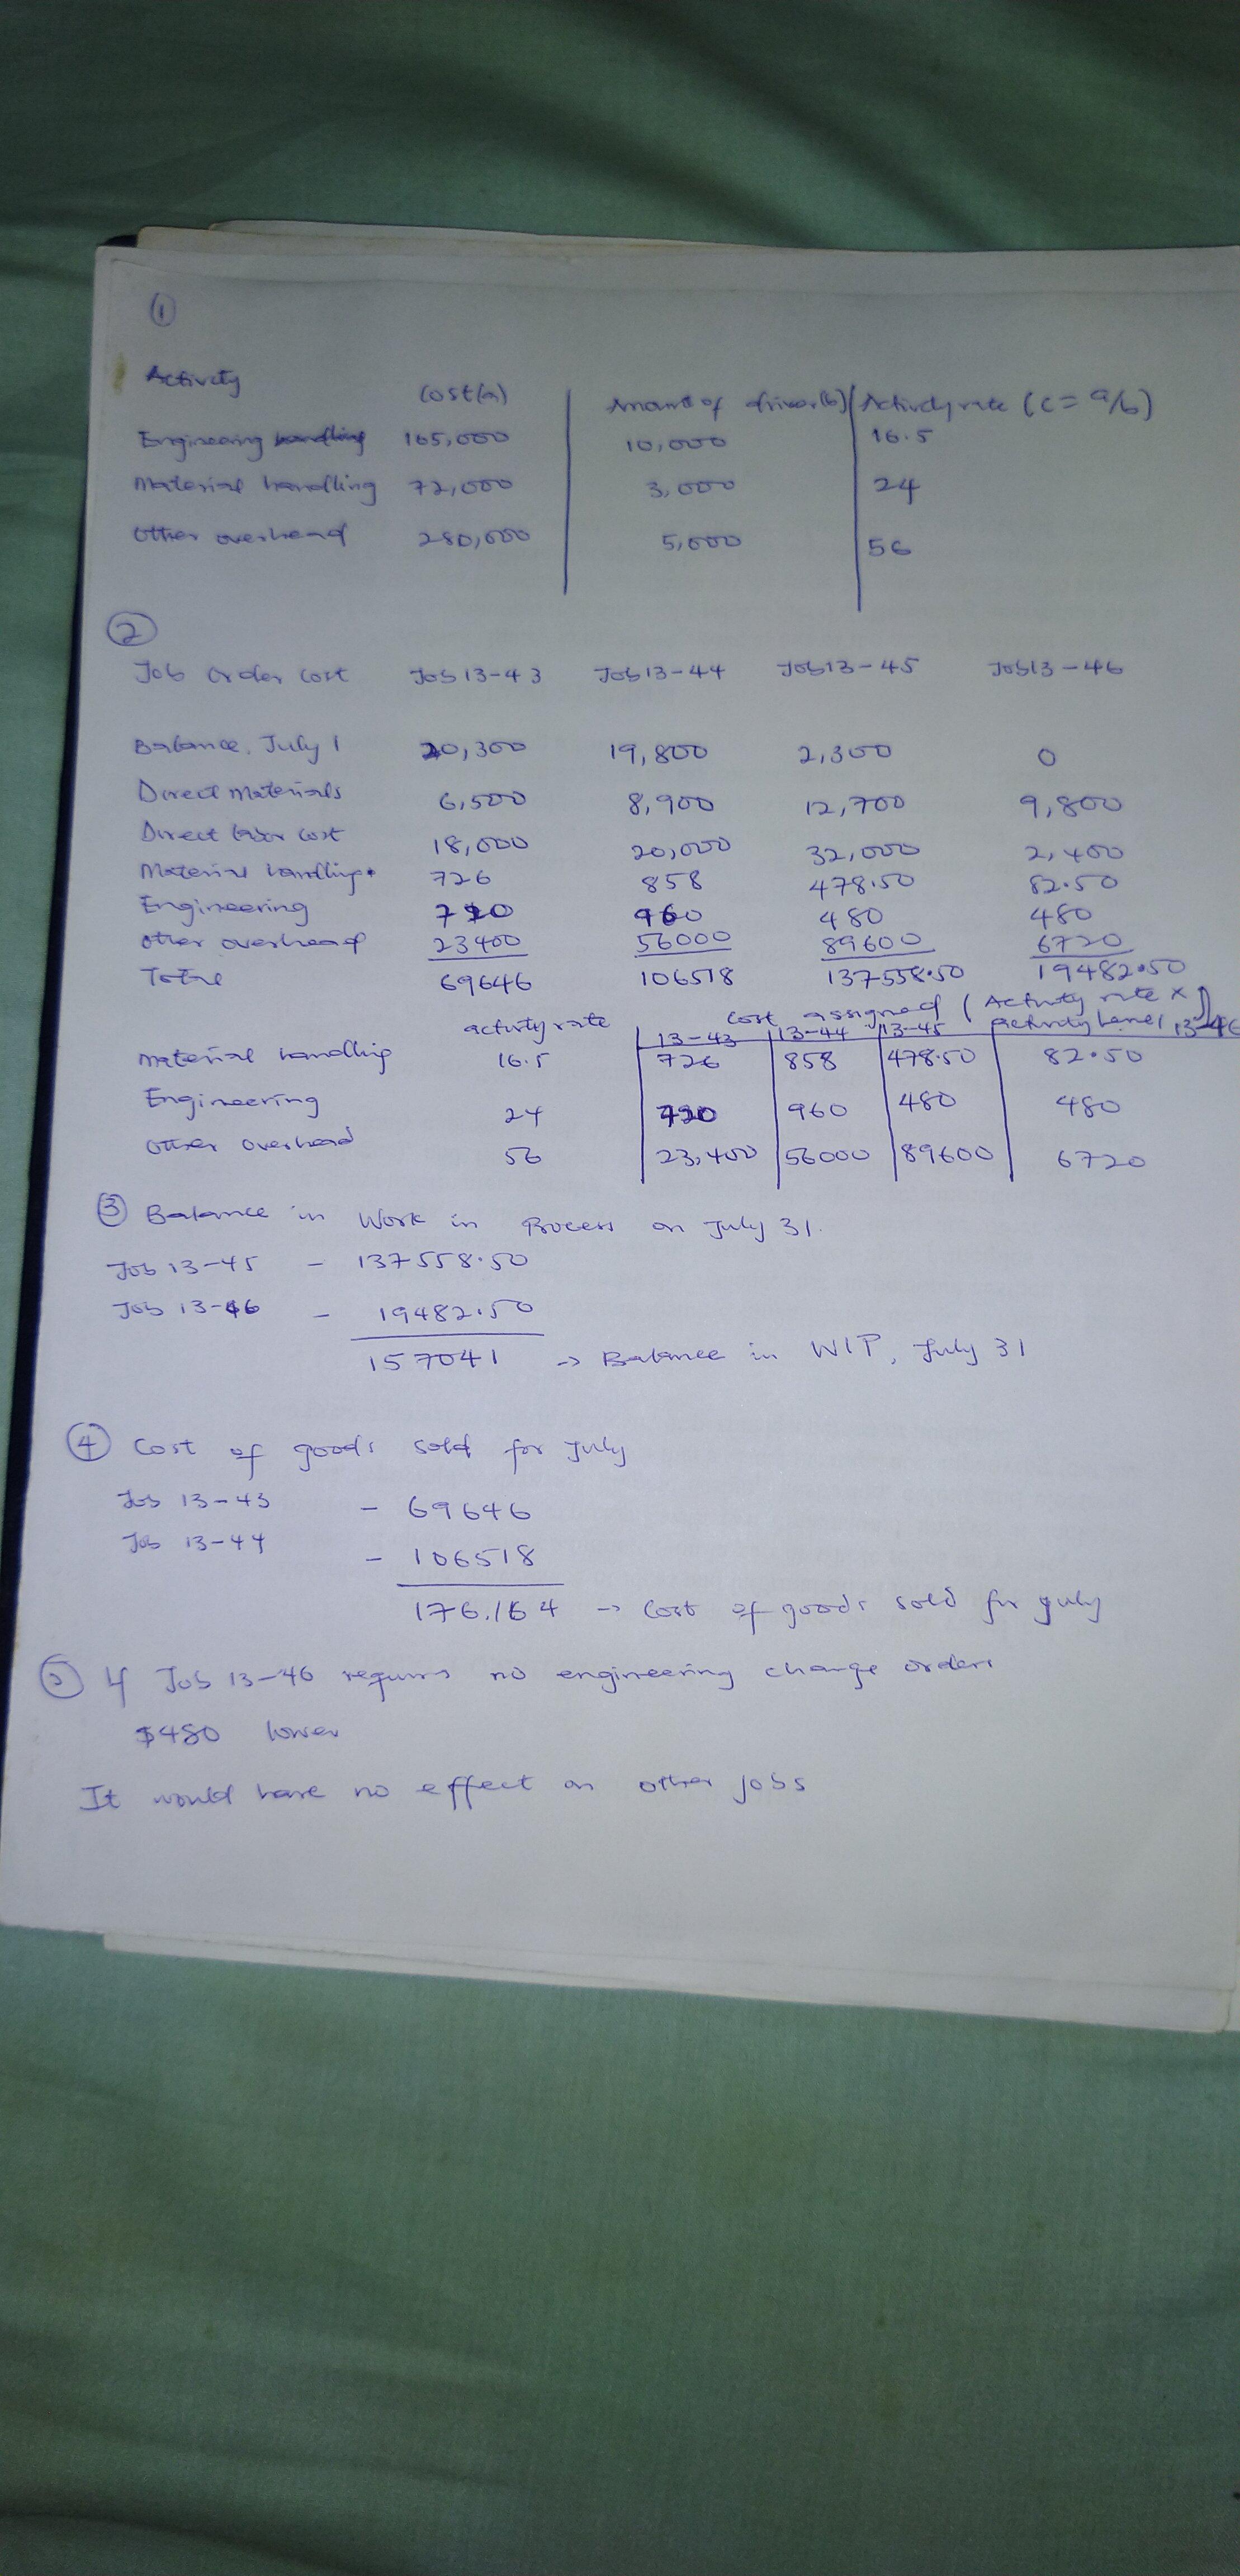 ①
Activity Cost(a) Amount of driver(b) Activity rate (c = a/b)
Engineering handling 165,000 10,000 16.5
Material handling 72,000 3,000 24
Other overhead 280,000 5,000 56
②
Job order cost Job 13-43 Job 13-44 Job 13-45 Job 13-46
Balance, July 1 20,300 19,800 2,300 0
Direct Materials 6,500 8,900 12,700 9,800
Direct labor cost 18,000 20,000 32,000 2,400
Material handling 726 858 478.50 82.50
Engineering 720 960 480 480
Other overhead 23400 56000 89600 6720
Total 69646 106518 137558.50 19482.50
activity rate Cost assigned (Activity rate x activity level)
13-43 13-44 13-45 13-46
Material handling 16.5 726 858 478.50 82.50
Engineering 24 720 960 480 480
Other overhead 56 23,400 56000 89600 6720
③ Balance in Work in Process on July 31.
Job 13-45 - 137558.50
Job 13-46 - 19482.50
157041 -> Balance in WIP, July 31
④ Cost of goods sold for July
Job 13-43 - 69646
Job 13-44 - 106518
176,164 -> Cost of goods sold for July
⑤ If Job 13-46 requires no engineering change orders
$480 lower
It would have no effect on other jobs